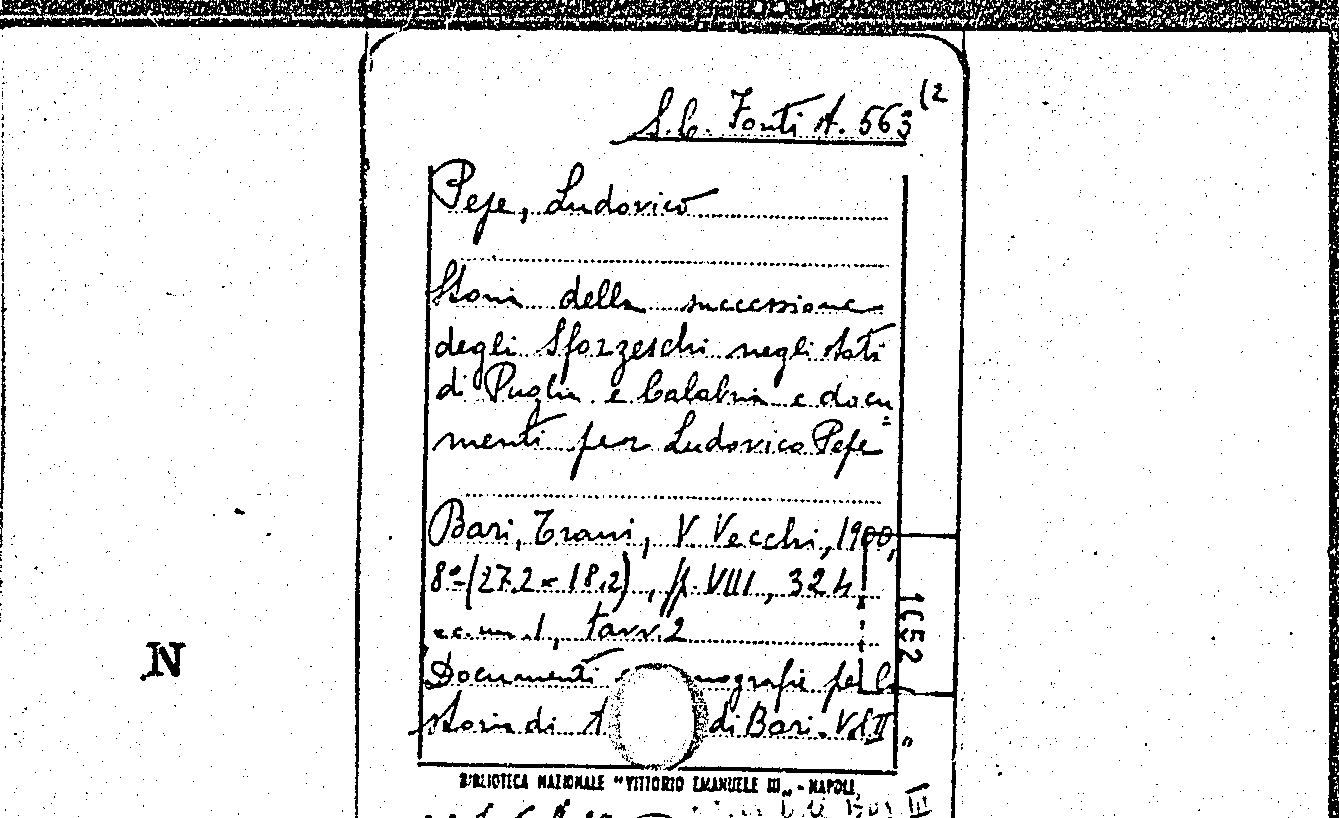 S.C. Fonti A. 563 (2
Pepe, Ludovico
Storia della successione
degli Sforzeschi negli stati
di Puglia e Calabria e docu=
menti per Ludovico Pepe
Bari, Trani, V. Vecchi, 1900,
8º (27.2 × 18,2), pp. VIII, 324
cc. nn. 1, tavv. 2
Documenti nografie per la
storia di di Bari. Vol II
1652
N
BIBLIOTECA NAZIONALE "VITTORIO EMANUELE III„ - NAPOLI